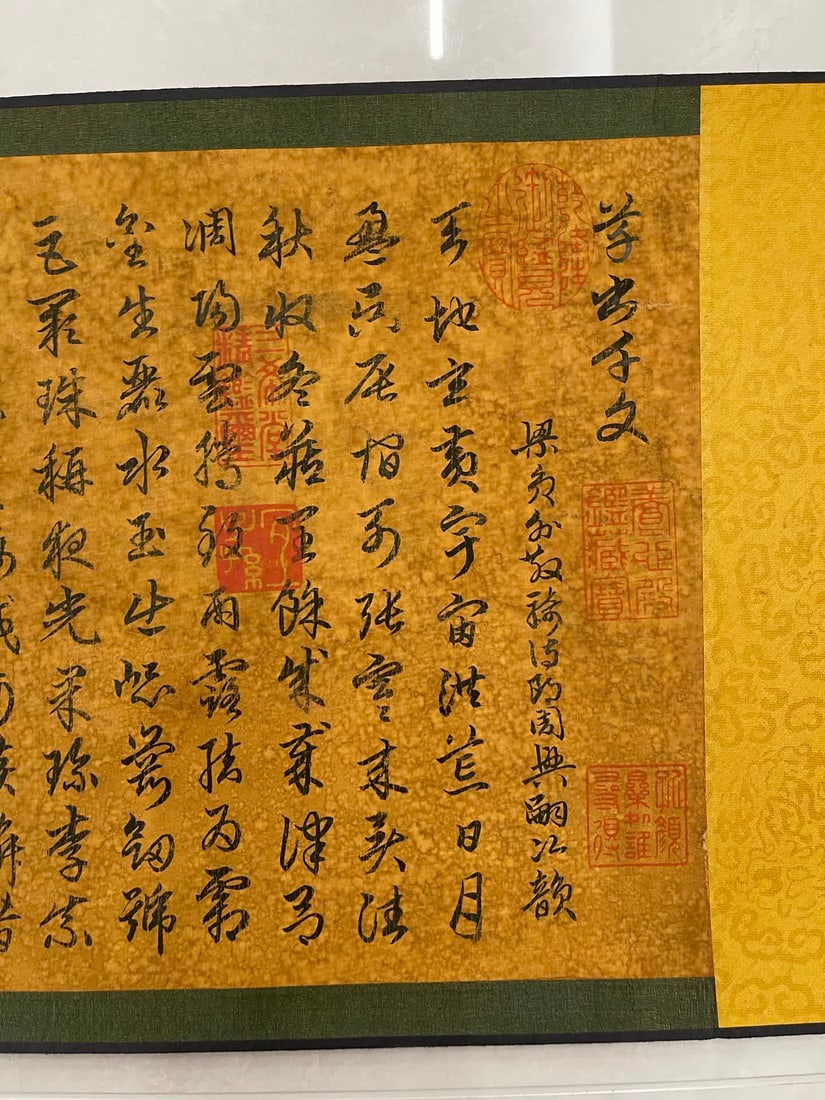 草書千文
梁員外散騎侍郎周興嗣次韻
天地玄黃宇宙洪荒日月
盈昃辰宿列張寒來暑往
秋收冬藏閏餘成歲律呂
調陽雲騰致雨露結為霜
金生麗水玉出崑崗劍號
巨闕珠稱夜光果珍李柰
乾隆御覽之寶
養心殿鑑藏寶
三希堂精鑑璽
宜子孫